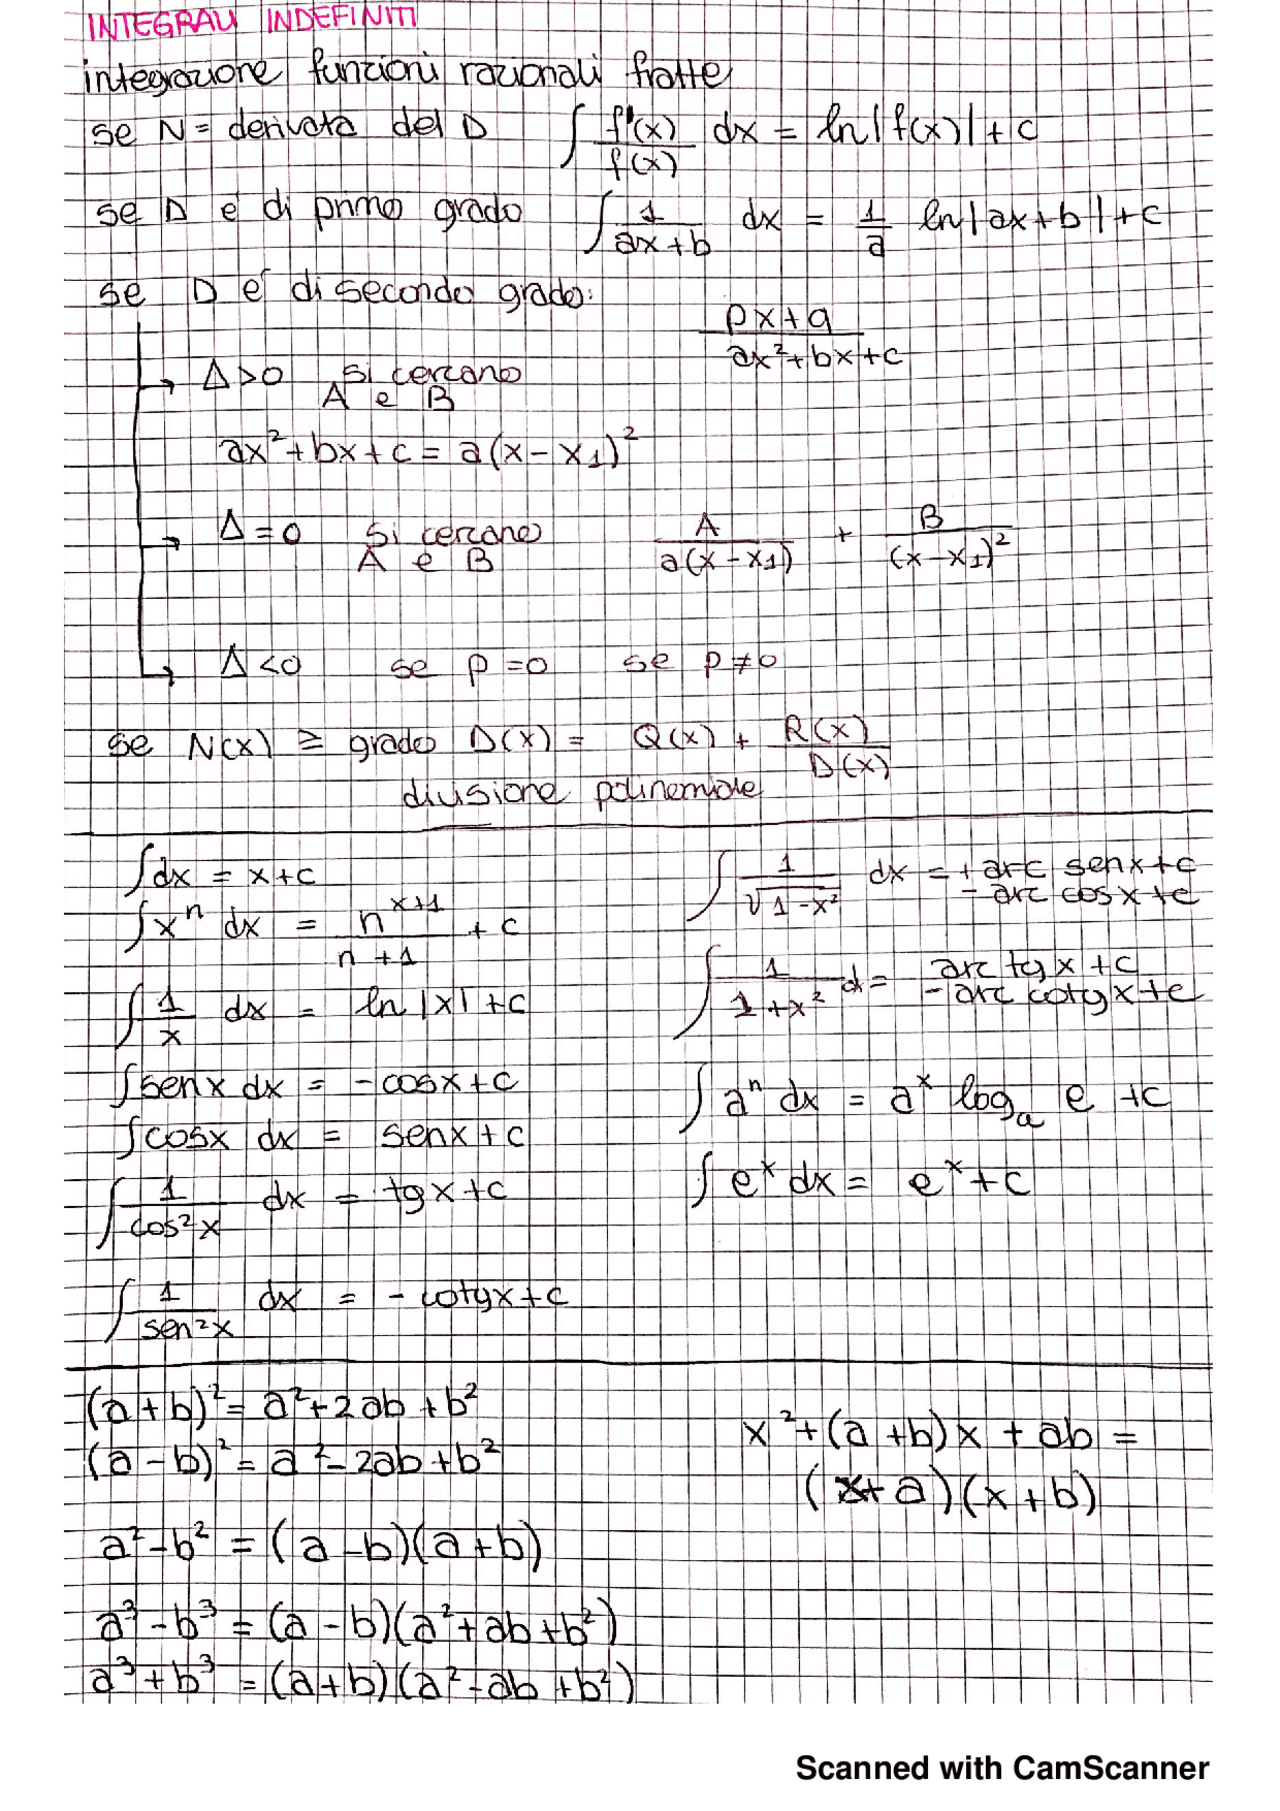 INTEGRALI INDEFINITI
integrazione funzioni razionali fratte
se N = derivata del D ∫ f'(x)/f(x) dx = ln|f(x)| + c
se D è di primo grado ∫ 1/(ax+b) dx = 1/a ln|ax+b| + c
se D è di secondo grado:
(px+q)/(ax²+bx+c)
→ Δ>0 si cercano
A e B
ax²+bx+c = a(x-x₁)²
→ Δ=0 si cercano A/(a(x-x₁)) + B/(x-x₁)²
A e B
→ Δ<0 se p=0 se p≠0
se N(x) ≥ grado D(x) = Q(x) + R(x)/D(x)
divisione polinomiale
∫dx = x+c
∫xⁿ dx = n^(x+1)/(n+1) + c
∫ 1/x dx = ln|x| + c
∫senx dx = -cosx+c
∫cosx dx = senx+c
∫ 1/cos²x dx = tgx+c
∫ 1/sen²x dx = -cotgx+c
∫ 1/√(1-x²) dx = + arc senx+c
- arc cosx+c
∫ 1/(1+x²) d = arc tgx+c
- arc cotgx+c
∫ aⁿ dx = aˣ logₐ e +c
∫ eˣ dx = eˣ+c
(a+b)² = a²+2ab+b²
(a-b)² = a²-2ab+b²
a²-b² = (a-b)(a+b)
a³-b³ = (a-b)(a²+ab+b²)
a³+b³ = (a+b)(a²-ab+b²)
x²+(a+b)x+ab =
(x+a)(x+b)
Scanned with CamScanner